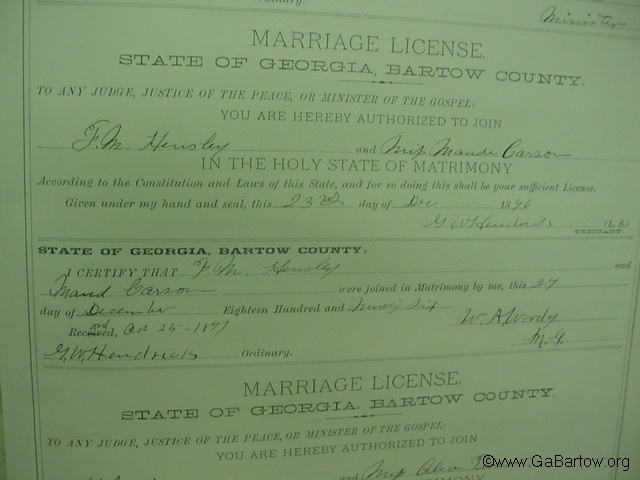 Minister
MARRIAGE LICENSE.
STATE OF GEORGIA, BARTOW COUNTY.
TO ANY JUDGE, JUSTICE OF THE PEACE, OR MINISTER OF THE GOSPEL:
YOU ARE HEREBY AUTHORIZED TO JOIN
F. M. Hensley and Miss Maude Carson
IN THE HOLY STATE OF MATRIMONY
According to the Constitution and Laws of this State, and for so doing this shall be your sufficient License.
Given under my hand and seal, this 23rd day of Dec 1896
G. W. Hendricks (L. S.)
ORDINARY.
STATE OF GEORGIA, BARTOW COUNTY:
I CERTIFY THAT F. M. Hensley and
Maud Carson were joined in Matrimony by me, this 27
day of December Eighteen Hundred and Ninety Six
Recorded, Oct 25-1897 W. A.
M. G.
G. W. Hendricks Ordinary.
MARRIAGE LICENSE.
STATE OF GEORGIA, BARTOW COUNTY.
TO ANY JUDGE, JUSTICE OF THE PEACE, OR MINISTER OF THE GOSPEL:
YOU ARE HEREBY AUTHORIZED TO JOIN
and Miss
©www.GaBartow.org